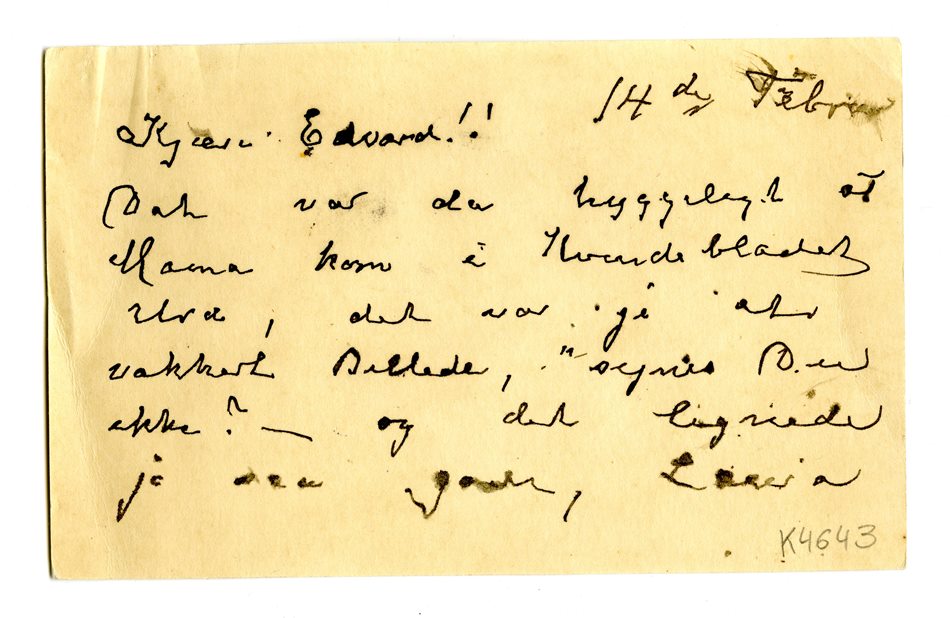 14de Februar
Kjære Edvard!!
Det var da hyggeligt at
Mama kom i Kvindebladet
det var jo et
vakkert Billede, synes Du
ikke? — og det lignede
ja saa godt,
K4643